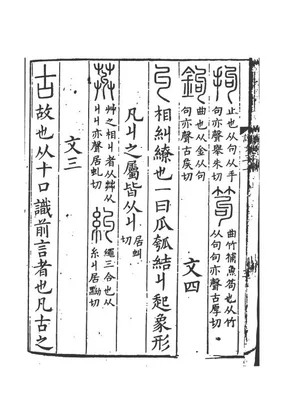 拘止也从句从手句亦聲舉朱切笱曲竹捕魚笱也从竹从句句亦聲古厚切
鉤曲也从金从句句亦聲古矦切 文四
丩相糾繚也一曰瓜瓠結丩起象形
凡丩之屬皆从丩居虯切
艸之相丩者从茻从丩丩亦聲居虬切糾繩三合也从糸丩居黝切
文三
古故也从十口識前言者也凡古之